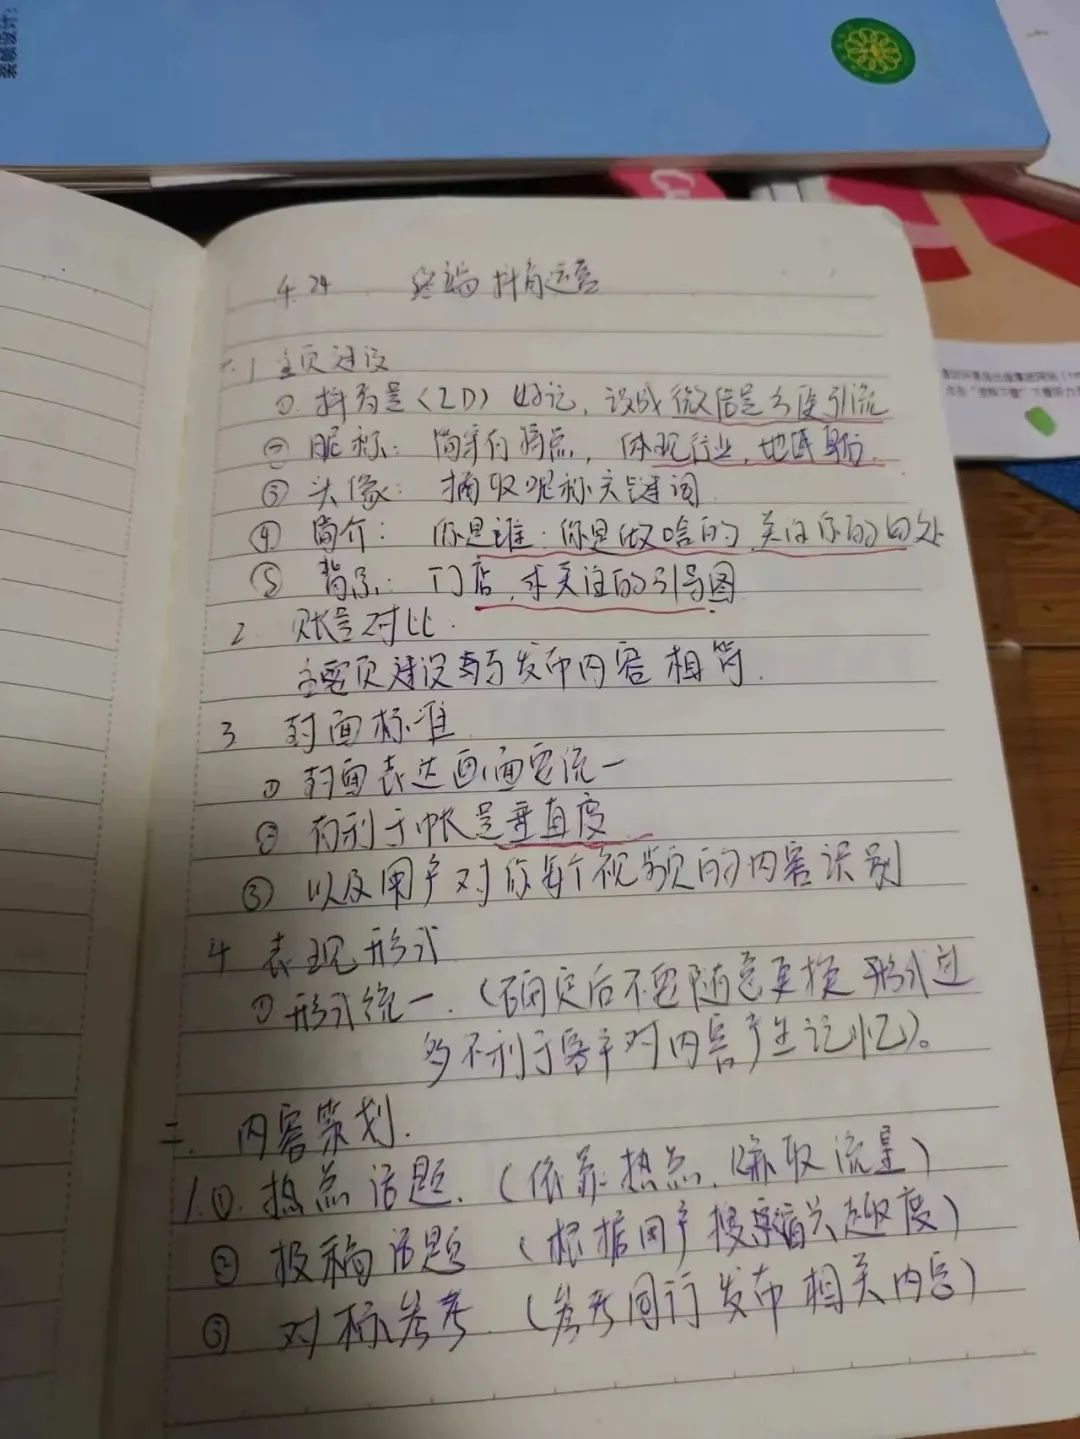 装帧设计:
4.24 终端抖音运营
一.1 主页建设
①. 抖音号(ID) 好记, 设成微信号方便引流
② 昵称: 简单有特点, 体现行业, 地区
③ 头像: 摘取昵称关键词
④ 简介: 你是谁. 你是做啥的 关注你的好处
⑤ 背景: 门店, 求关注的引导图
2 账号对比:
主页建设要与发布内容相符.
3 封面标准
① 封面表达画面要统一
② 有利于帐号垂直度
③ 以及用户对你每个视频的内容识别
4 表现形式
① 形式统一. (确定后不要随意更换 形式过
多不利于客户对内容产生记忆)。
二. 内容策划.
1.①. 热点话题. (依靠热点, 赚取流量)
② 投稿话题 (根据用户搜索兴趣度)
③ 对标参考. (参考同行发布相关内容)